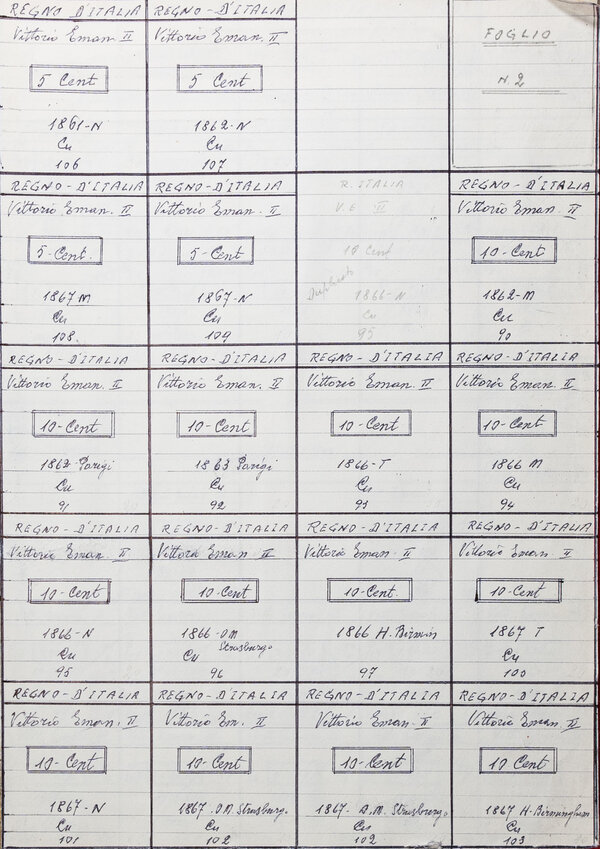 REGNO D'ITALIA
Vittorio Eman. II
5 Cent
1861-N
Cu
106
REGNO-D'ITALIA
Vittorio Eman. II
5 Cent
1862-N
Cu
107
FOGLIO
N. 2
REGNO-D'ITALIA
Vittorio Eman. II
5-Cent.
1867 M
Cu
108.
REGNO-D'ITALIA
Vittorio Eman. II
5-Cent
1867-N
Cu
109
R. ITALIA
V. E II
10 Cent
Duplicato
1866-N
Cu
95
REGNO-D'ITALIA
Vittorio Eman. II
10-Cent
1862-M
Cu
90
REGNO-D'ITALIA
Vittorio Eman. II
10-Cent
1862 Parigi
Cu
91
REGNO-D'ITALIA
Vittorio Eman. II
10-Cent
1863 Parigi
Cu
92
REGNO-D'ITALIA
Vittorio Eman. II
10-Cent
1866-T
Cu
93
REGNO-D'ITALIA
Vittorio Eman. II
10-Cent
1866 M
Cu
94
REGNO-D'ITALIA
Vittorio Eman II
10-Cent
1866-N
Cu
95
REGNO-D'ITALIA
Vittorio Eman II
10-Cent
1866-OM
Strasburgo
Cu
96
REGNO-D'ITALIA
Vittorio Eman. II
10-Cent.
1866 H. Birmin
97
REGNO-D'ITALIA
Vittorio Eman II
10-Cent
1867 T
Cu
100
REGNO-D'ITALIA
Vittorio Eman. II
10-Cent
1867-N
Cu
101
REGNO-D'ITALIA
Vittorio Em. II
10-Cent
1867. OM Strasburgo
Cu
102
REGNO-D'ITALIA
Vittorio Eman. II
10-Cent
1867. A.M. Strasburgo
Cu
102
REGNO-D'ITALIA
Vittorio Eman. II
10 Cent
1867 H-Birmingham
Cu
103